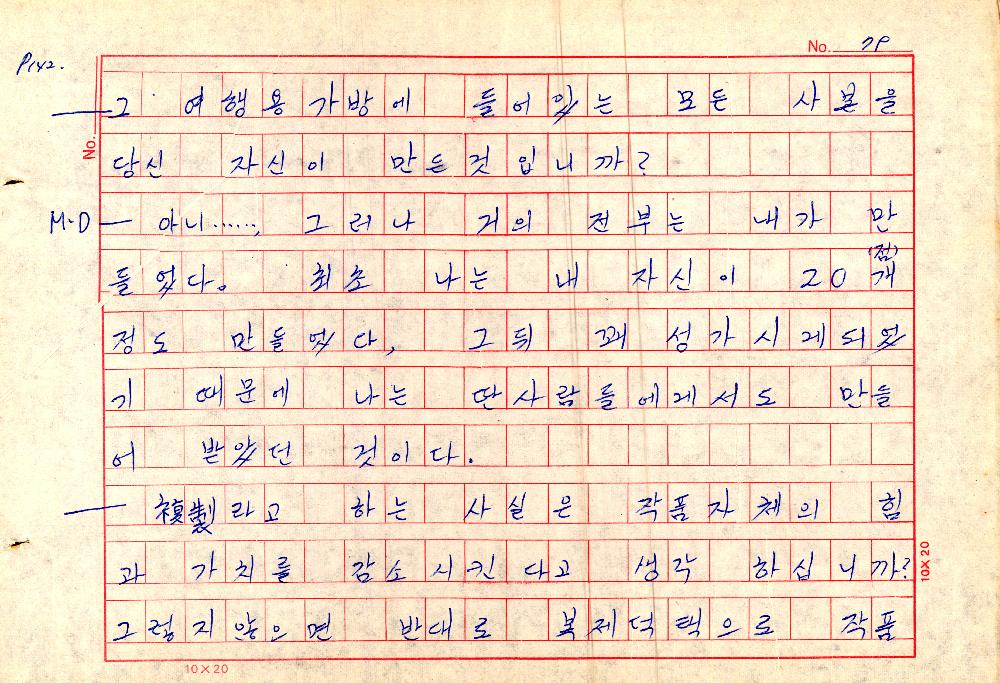 No. 79
P142.
— 그 여행용 가방에 들어있는 모든 사본을
No.
당신 자신이 만든것 입니까?
M·D — 아니……, 그러나 거의 전부는 내가 만
(점)
들었다. 최초 나는 내 자신이 20개
정도 만들었다, 그뒤 꽤 성가시게되었
기 때문에 나는 딴사람들에게서도 만들
어 받았던 것이다.
— 複製라고 하는 사실은 작품자체의 힘
과 가치를 감소시킨다고 생각 하십니까?
10×20
그렇지않으면 반대로 복제덕택으로 작품
10×20